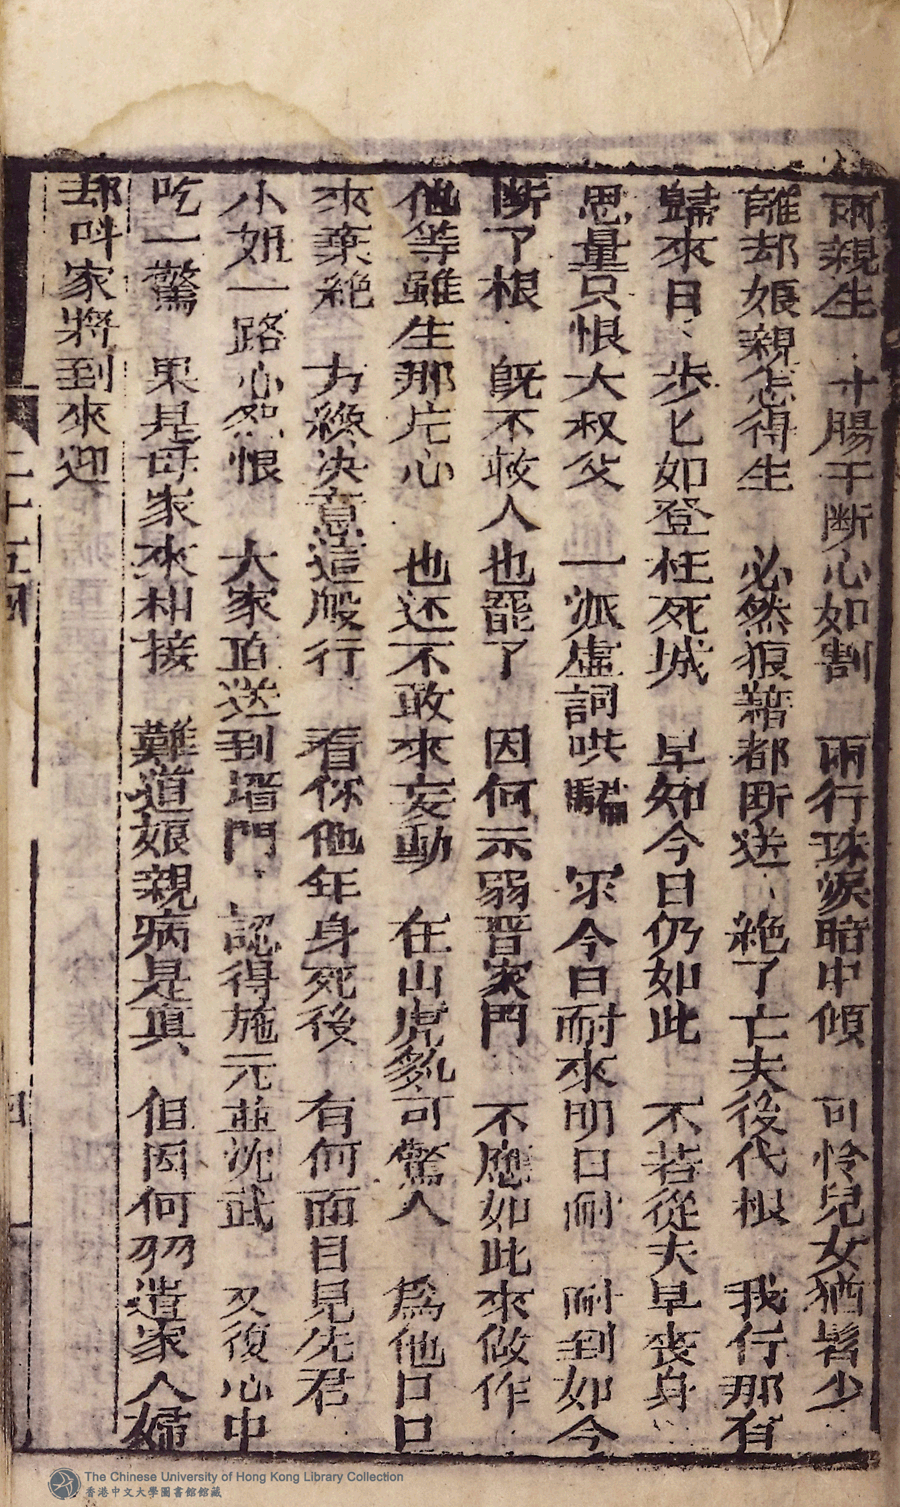 兩親生 寸腸干断心如割 兩行珠淚暗中傾 可怜兒女猶髫少
離却娘親怎得生 必然狼藉都断送 絶了亡夫後代根 我行那有
歸來日 步匕如登枉死城 早知今日仍如此 不若從夫早丧身
思量只恨大叔父 一派虛詞哄騙 今日耐來明日耐 耐到如今
断了根 既不救人也罷了 因何示弱晋家門 不應如此來做作
他等雖生那片心 也还不敢來妄動 在山虎豹可驚人 爲他日日
來棄絶 力終决意這般行 看你他年身死後 有何面目見先君
小姐一路心怨恨 大家直送到墙門 認得施元並沈武 又復心中
吃一驚 果是母家來相接 難道娘親病是真 但因何不遣家人婦
却呌家將到來迎
二十五回
四
The Chinese University of Hong Kong Library Collection
香港中文大學圖書館館藏